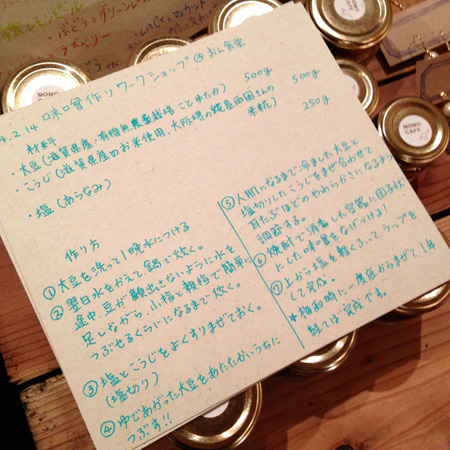 4.2.14 味噌作りワークショップ @ おん食堂
材料
・大豆(滋賀県産・有機無農薬栽培 ことゆたか) 500g
・こうじ(滋賀県産のお米使用、大阪堺の糀屋雨風さんの米糀) 500g
・塩(あらなみ) 250g
作り方
① 大豆を洗って1晩水につける
② 翌日水をかえて鍋で炊く。
途中、豆が顔出さないように水を
足しながら、小指と親指で簡単に
つぶせるくらいになるまで炊く。
③ 塩とこうじをよくすりまぜておく。
(塩切り)
④ ゆであがった大豆をあたたかいうちに
つぶす!!
⑤ 人肌になるまで冷ました大豆と
塩切りしたこうじをまぜ合わせて
耳たぶほどのやわらかさになるまで
調節する。
⑥ 焼酎で消毒した容器に団子状
にした味噌をなげつける!
⑦ 上から塩を軽くふって、ラップを
して完成。
* 梅雨時に一度底からまぜて、1年
経てば完成です。
MOMO
CAFE
MOMO
CAFE